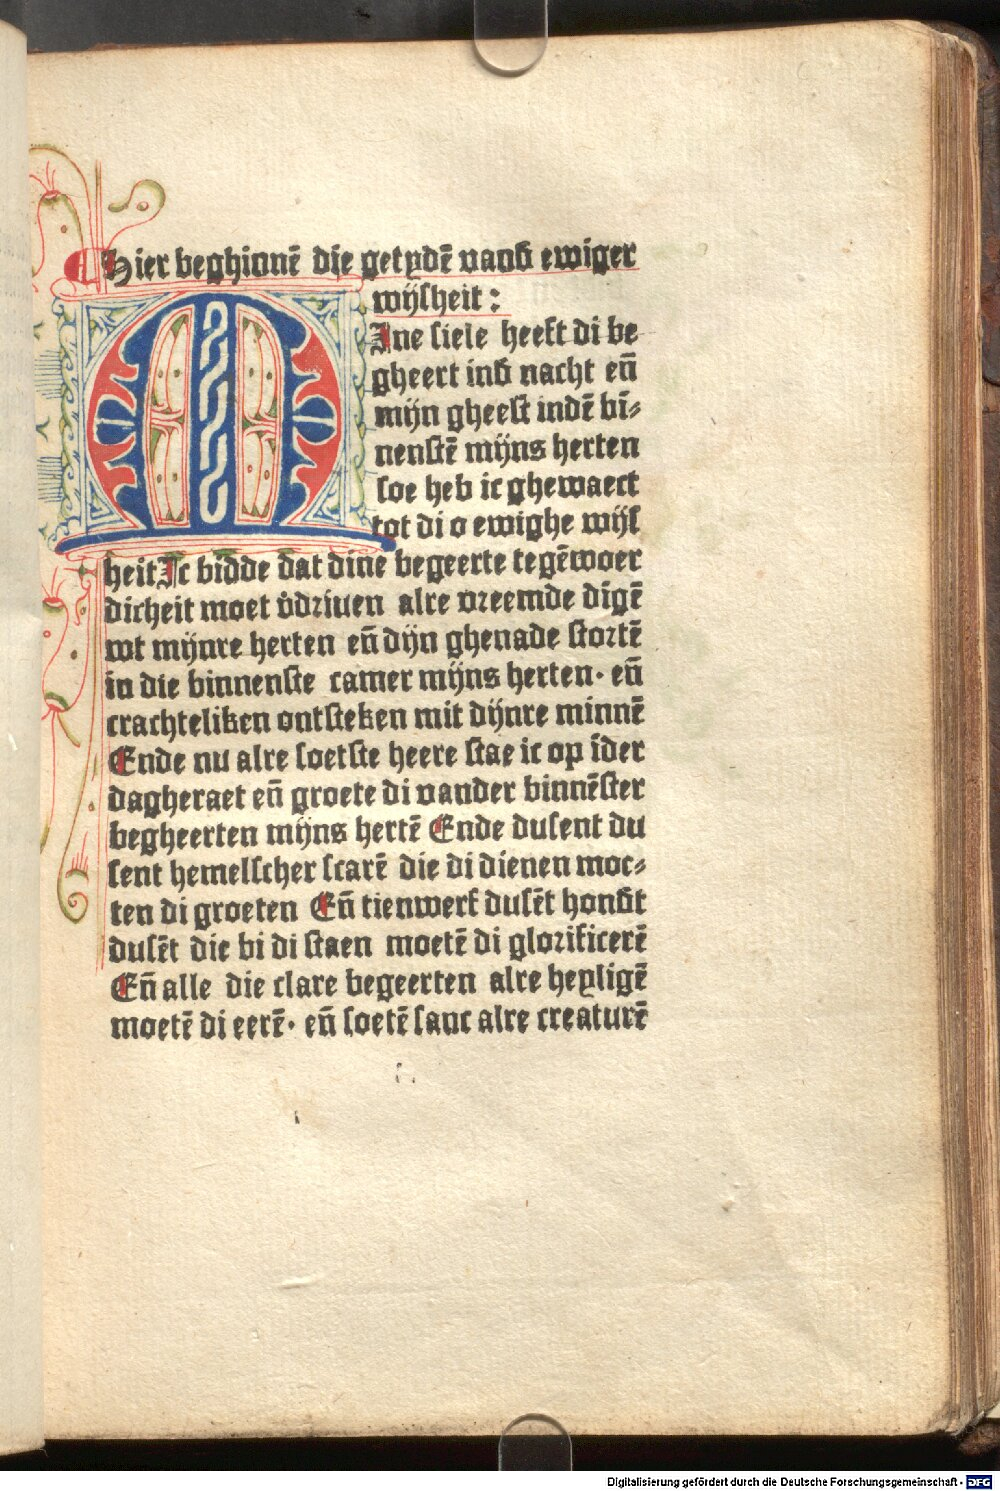 ¶ Hier beghinnē die getydē vanđ ewiger
wijſheit :
MIne ſiele heeft di be
gheert inđ nacht eñ
mijn gheeſt indē bī⸗
nenſtē mijns herten
ſoe heb ic ghewaect
tot di o ewighe wijſ
heit Ic bidde dat dine begeerte tegēwoer
dicheit moet v̄driuen alre vreemde digē
wt mijnre herten eñ dijn ghenade ſtortē
in die binnenſte camer mijns herten· eñ
crachteliken ontſteken mit dijnre minnē
Ende nu alre ſoetſte heere ſtae ic op īder
dagheraet eñ groete di vander binnēſter
begheerten mijns hertē Ende duſent du
ſent hemelſcher ſcarē die di dienen moe⸗
ten di groeten Eñ tienwerf duſēt honđt
duſēt die bi di ſtaen moetē di glorificerē
Eñ alle die clare begeerten alre heyligē
moetē di eerē· eñ ſoetē ſanc alre creaturē
Digitalisierung gefördert durch die Deutsche Forschungsgemeinschaft - DFG